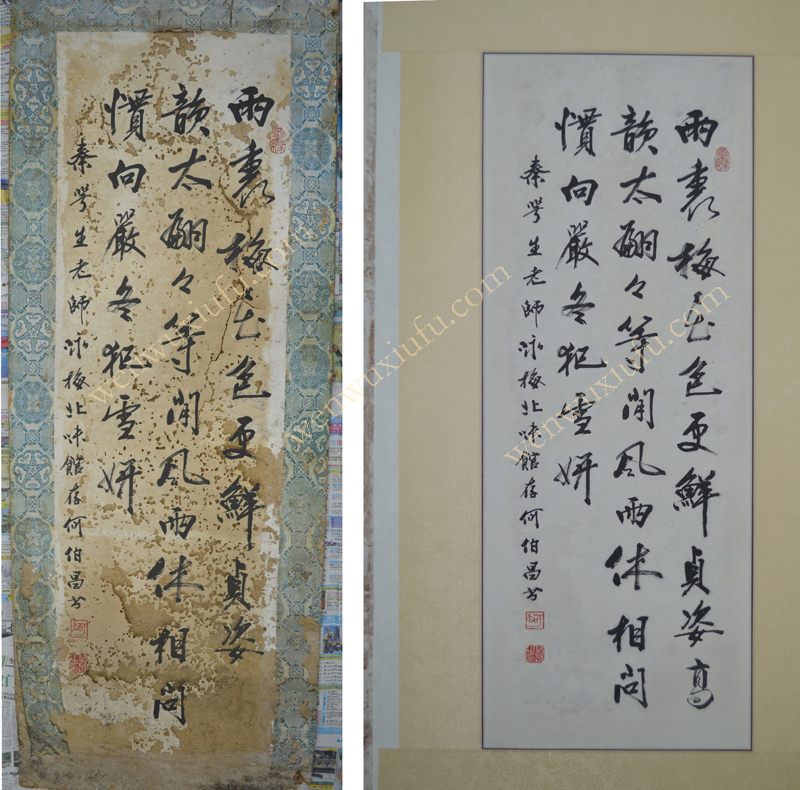 雨裏梅花色更鮮貞姿
韻太翩々等閑風雨休相問
慣向嚴冬犯雪妍
秦咢生老師咏梅北味館存何伯昌书
雨裏梅花色更鮮貞姿高
韻太翩々等閑風雨休相問
慣向嚴冬犯雪妍
秦咢生老師咏梅北味館存何伯昌书
wenwuxiufu.com
wenwuxiufu.com
wenwuxiufu.com